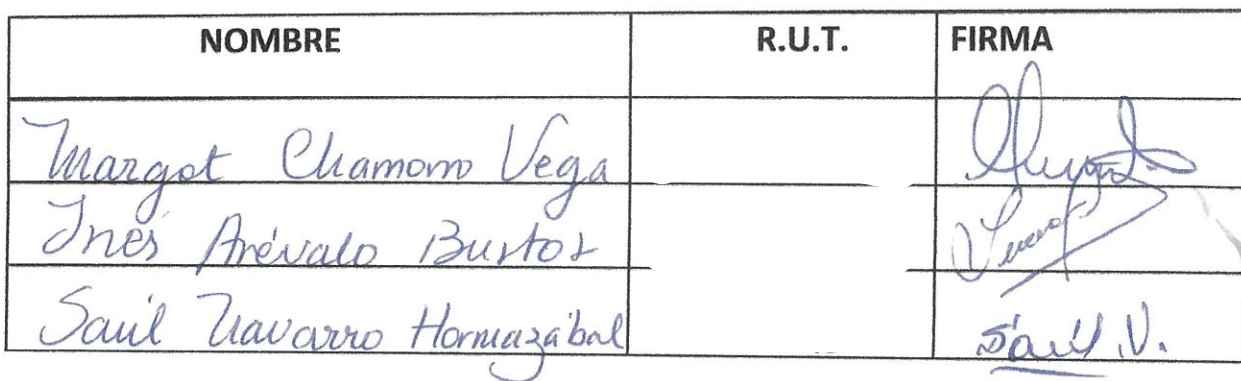 NOMBRE R.U.T. FIRMA
Margot Chamorro Vega
Inés Arévalo Bustos
Saúl Navarro Hormazábal Saúl N.